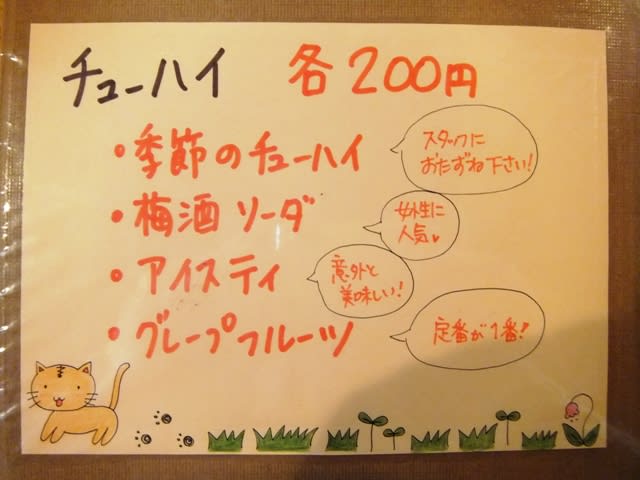 チューハイ 各200円
・季節のチューハイ
スタッフに
おたずね下さい!
・梅酒ソーダ
女性に
人気♥
・アイスティ
意外と
美味しい!
・グレープフルーツ
定番が1番!